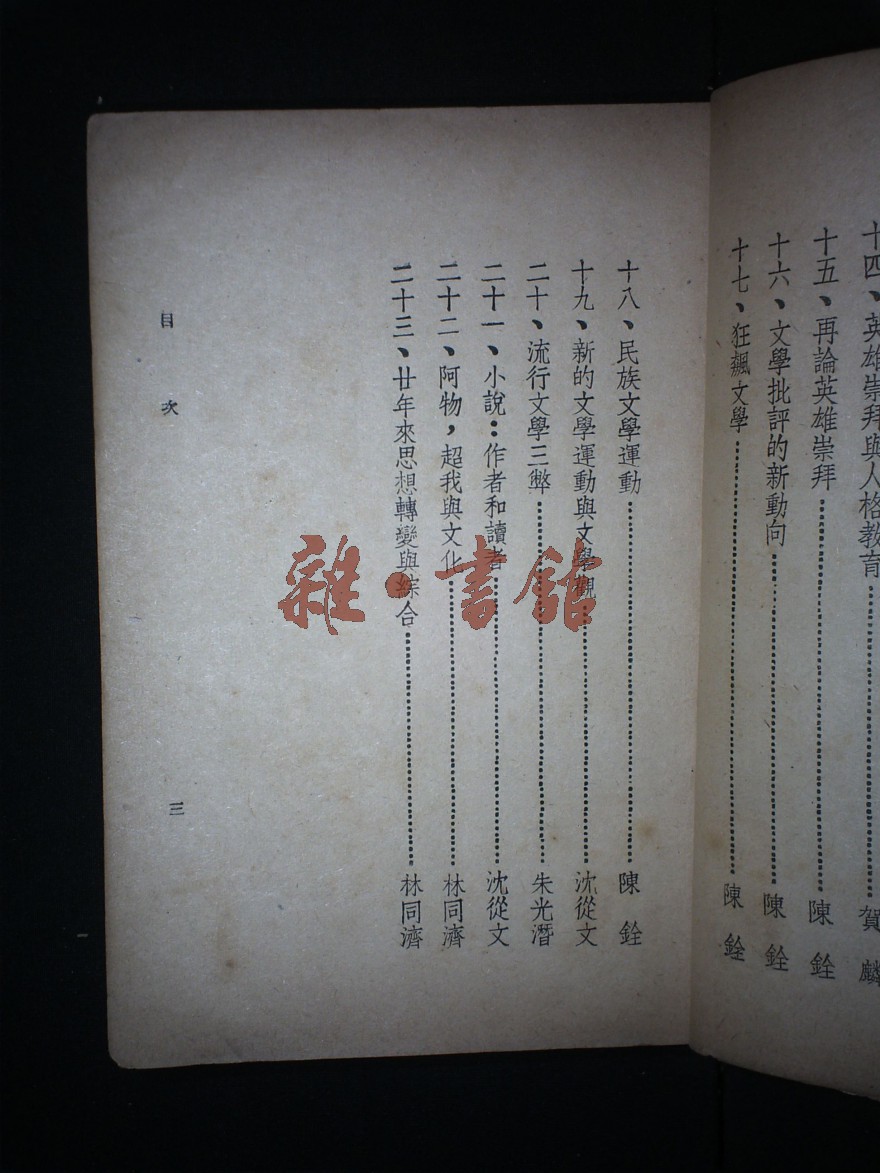 十四、英雄崇拜與人格教育……賀麟
十五、再論英雄崇拜……陳銓
十六、文學批評的新動向……陳銓
十七、狂飆文學……陳銓
十八、民族文學運動……陳銓
十九、新的文學運動與文學觀……沈從文
二十、流行文學三弊……朱光潛
二十一、小說：作者和讀者……沈從文
二十二、阿物，超我與文化……林同濟
二十三、廿年來思想轉變與綜合……林同濟
目次
三
雜·書館